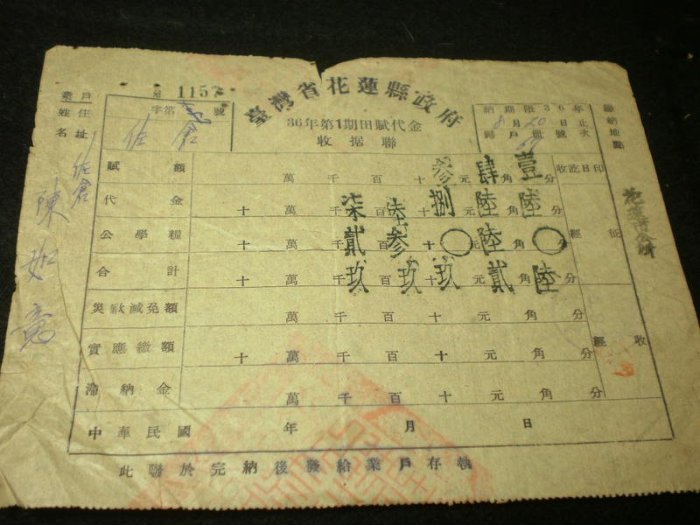 業戶
住址
姓名
佐倉
陳
1157
字第 號
佐倉
臺灣省花蓮縣政府
36年第1期田賦代金
收据聯
納期限36年
8月20日止
聯納地點
賦額 十萬千百十元角分
參肆壹
代金 十萬千百十元角分
柒陸捌陸陸
公學糧 十萬千百十元角分
貳參〇陸〇
合計 十萬千百十元角分
玖玖玖貳陸
災歉減免額 萬千百十元角分
實應繳額 十萬千百十元角分
滯納金 萬千百十元角分
經征
經收
中華民國 年 月 日
此聯於完納後發給業戶存執